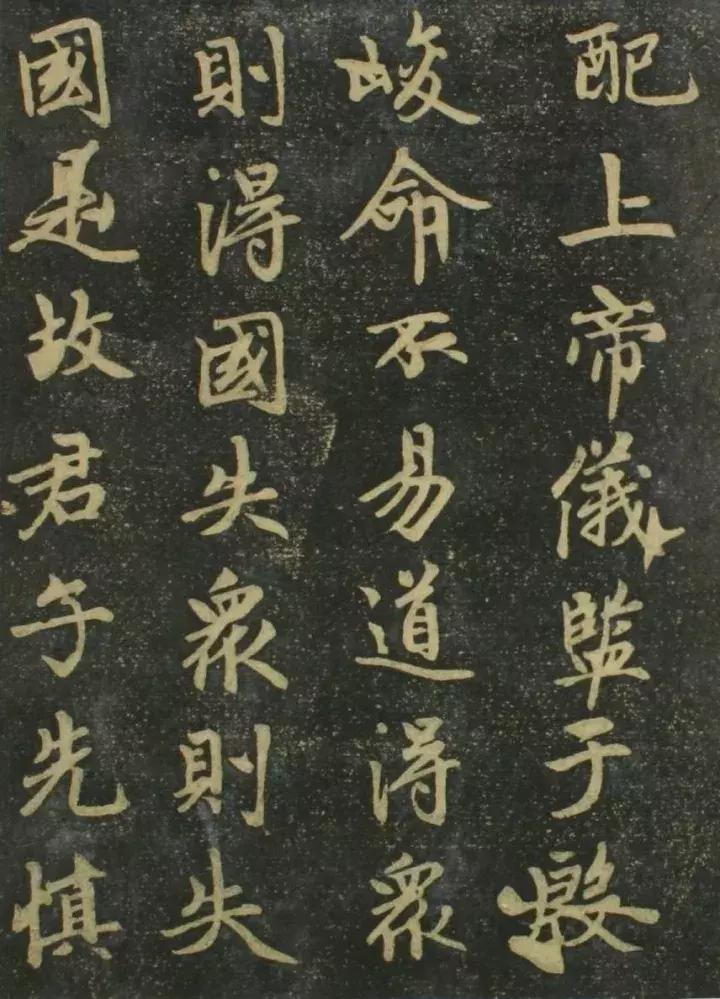 配上帝儀監于殷
峻命不易道得眾
則得國失眾則失
國是故君子先慎